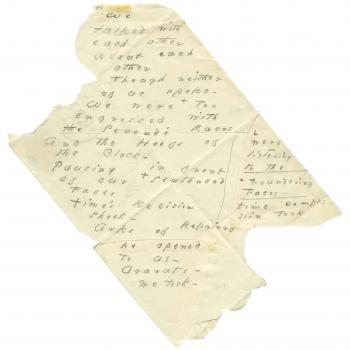 We
talked with
each other
about each
other
Though neither
of us spoke-
We were + too
engrossed with
the Second's Races
And the Hoofs of
the Clock-
Pausing in front
of our + Sentenced
Faces
Time's Decision
shook-
Arks of Reprieve
he opened
to us-
Ararats-
we took-
were
listening
to the
+ foundering
Faces
time compas
sion took